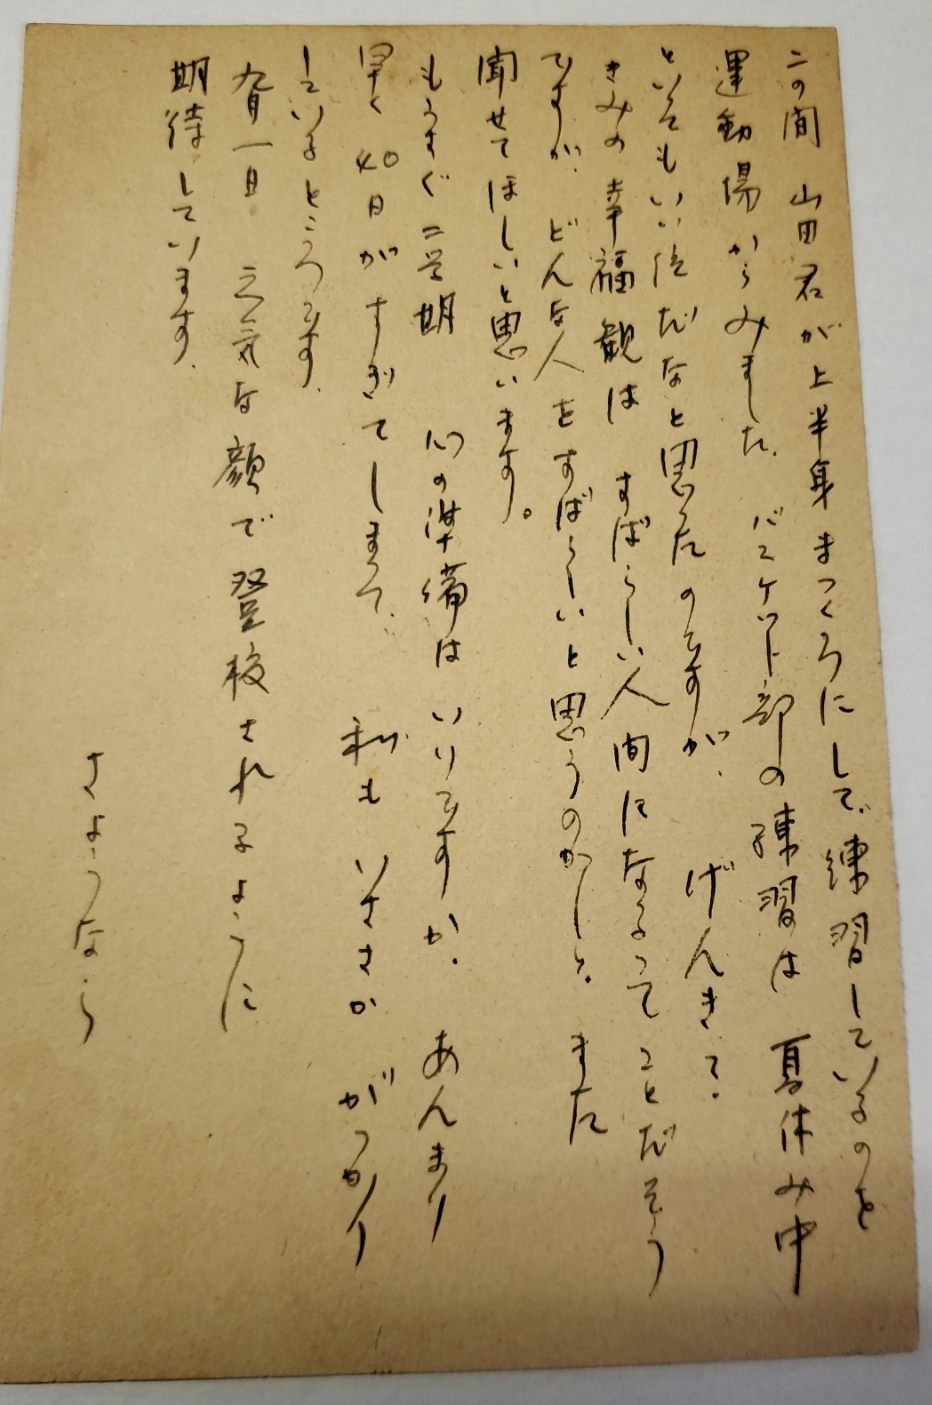 この間 山田君が上半身まっくろにして、練習しているのを
運動場からみました。バスケット部の練習は 夏休み中
といってもいい位だなと思ったのですが、 げんきで。
きみの幸福観は すばらしい人間になるってことだそう
ですが、どんな人をすばらしいと思うのかしら。また
聞せてほしいと思います。
もうすぐ二学期 心の準備は いいですか。あんまり
早く 40日がすぎてしまって、 私も いささか がっかり
しているところです。
九月一日 元気な顔で登校されるように
期待しています。
さようなら